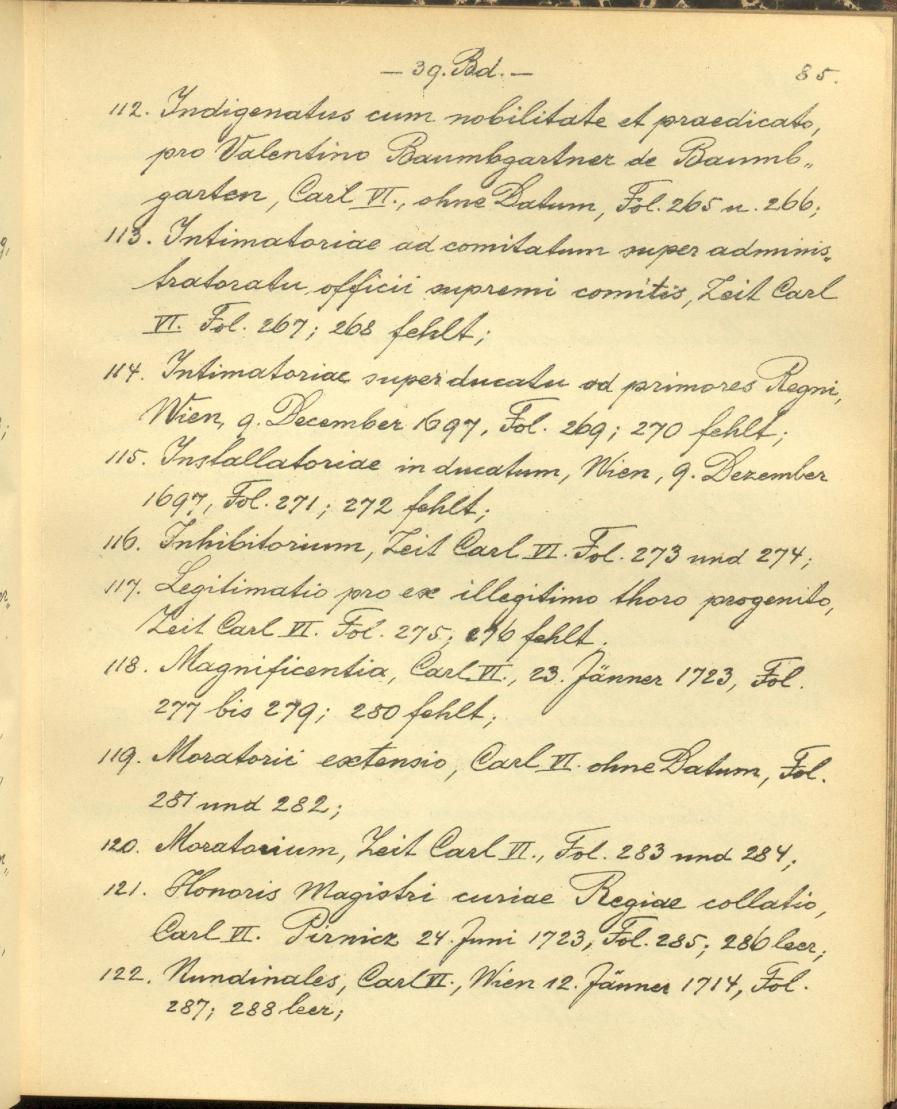 — 39. Bd. —
85.
112. Indigenatus cum nobilitate et praedicato,
pro Valentino Baumbgartner de Baumb„
garten, Carl VI., ohne Datum, Fol. 265 u. 266;
113. Intimatoriae ad comitatum super adminis„
tratoratu officii supremi comitis, Zeit Carl
VI. Fol. 267; 268 fehlt;
114. Intimatoriae super ducatu ad primores Regni,
Wien, 9. December 1697, Fol. 269; 270 fehlt;
115. Installatoriae in ducatum, Wien, 9. Dezember
1697, Fol. 271; 272 fehlt;
116. Inhibitorium, Zeit Carl VI. Fol. 273 und 274;
117. Legitimatio pro ex illegitimo thoro progenito,
Zeit Carl VI. Fol. 275; 276 fehlt.
118. Magnificentia, Carl VI., 23. Jänner 1723, Fol.
277 bis 279; 280 fehlt;
119. Moratorii extensio, Carl VI. ohne Datum, Fol.
281 und 282;
120. Moratorium, Zeit Carl VI., Fol. 283 und 284;
121. Honoris Magistri curiae Regiae collatio,
Carl VI. Pirnicz 24. Juni 1723, Fol. 285; 286 leer;
122. Nundinales, Carl VI., Wien 12. Jänner 1714, Fol.
287; 288 leer;